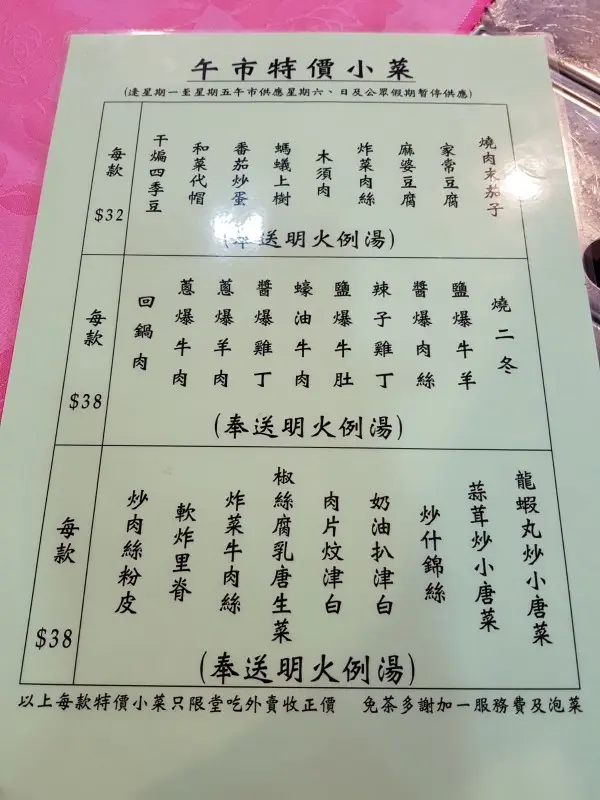 午市特價小菜
(逢星期一至星期五午市供應星期六、日及公眾假期暫停供應)
每款
$32
干煸四季豆
和菜代帽
番茄炒蛋
螞蟻上樹
木須肉
炸菜肉絲
麻婆豆腐
家常豆腐
燒肉末茄子
(奉送明火例湯)
每款
$38
回鍋肉
蔥爆牛肉
蔥爆羊肉
醬爆雞丁
蠔油牛肉
鹽爆牛肚
辣子雞丁
醬爆肉絲
鹽爆牛羊
燒二冬
(奉送明火例湯)
每款
$38
炒肉絲粉皮
軟炸里脊
炸菜牛肉絲
椒絲腐乳唐生菜
肉片炆津白
奶油扒津白
炒什錦絲
蒜茸炒小唐菜
龍蝦丸炒小唐菜
(奉送明火例湯)
以上每款特價小菜只限堂吃外賣收正價 免茶多謝加一服務費及泡菜